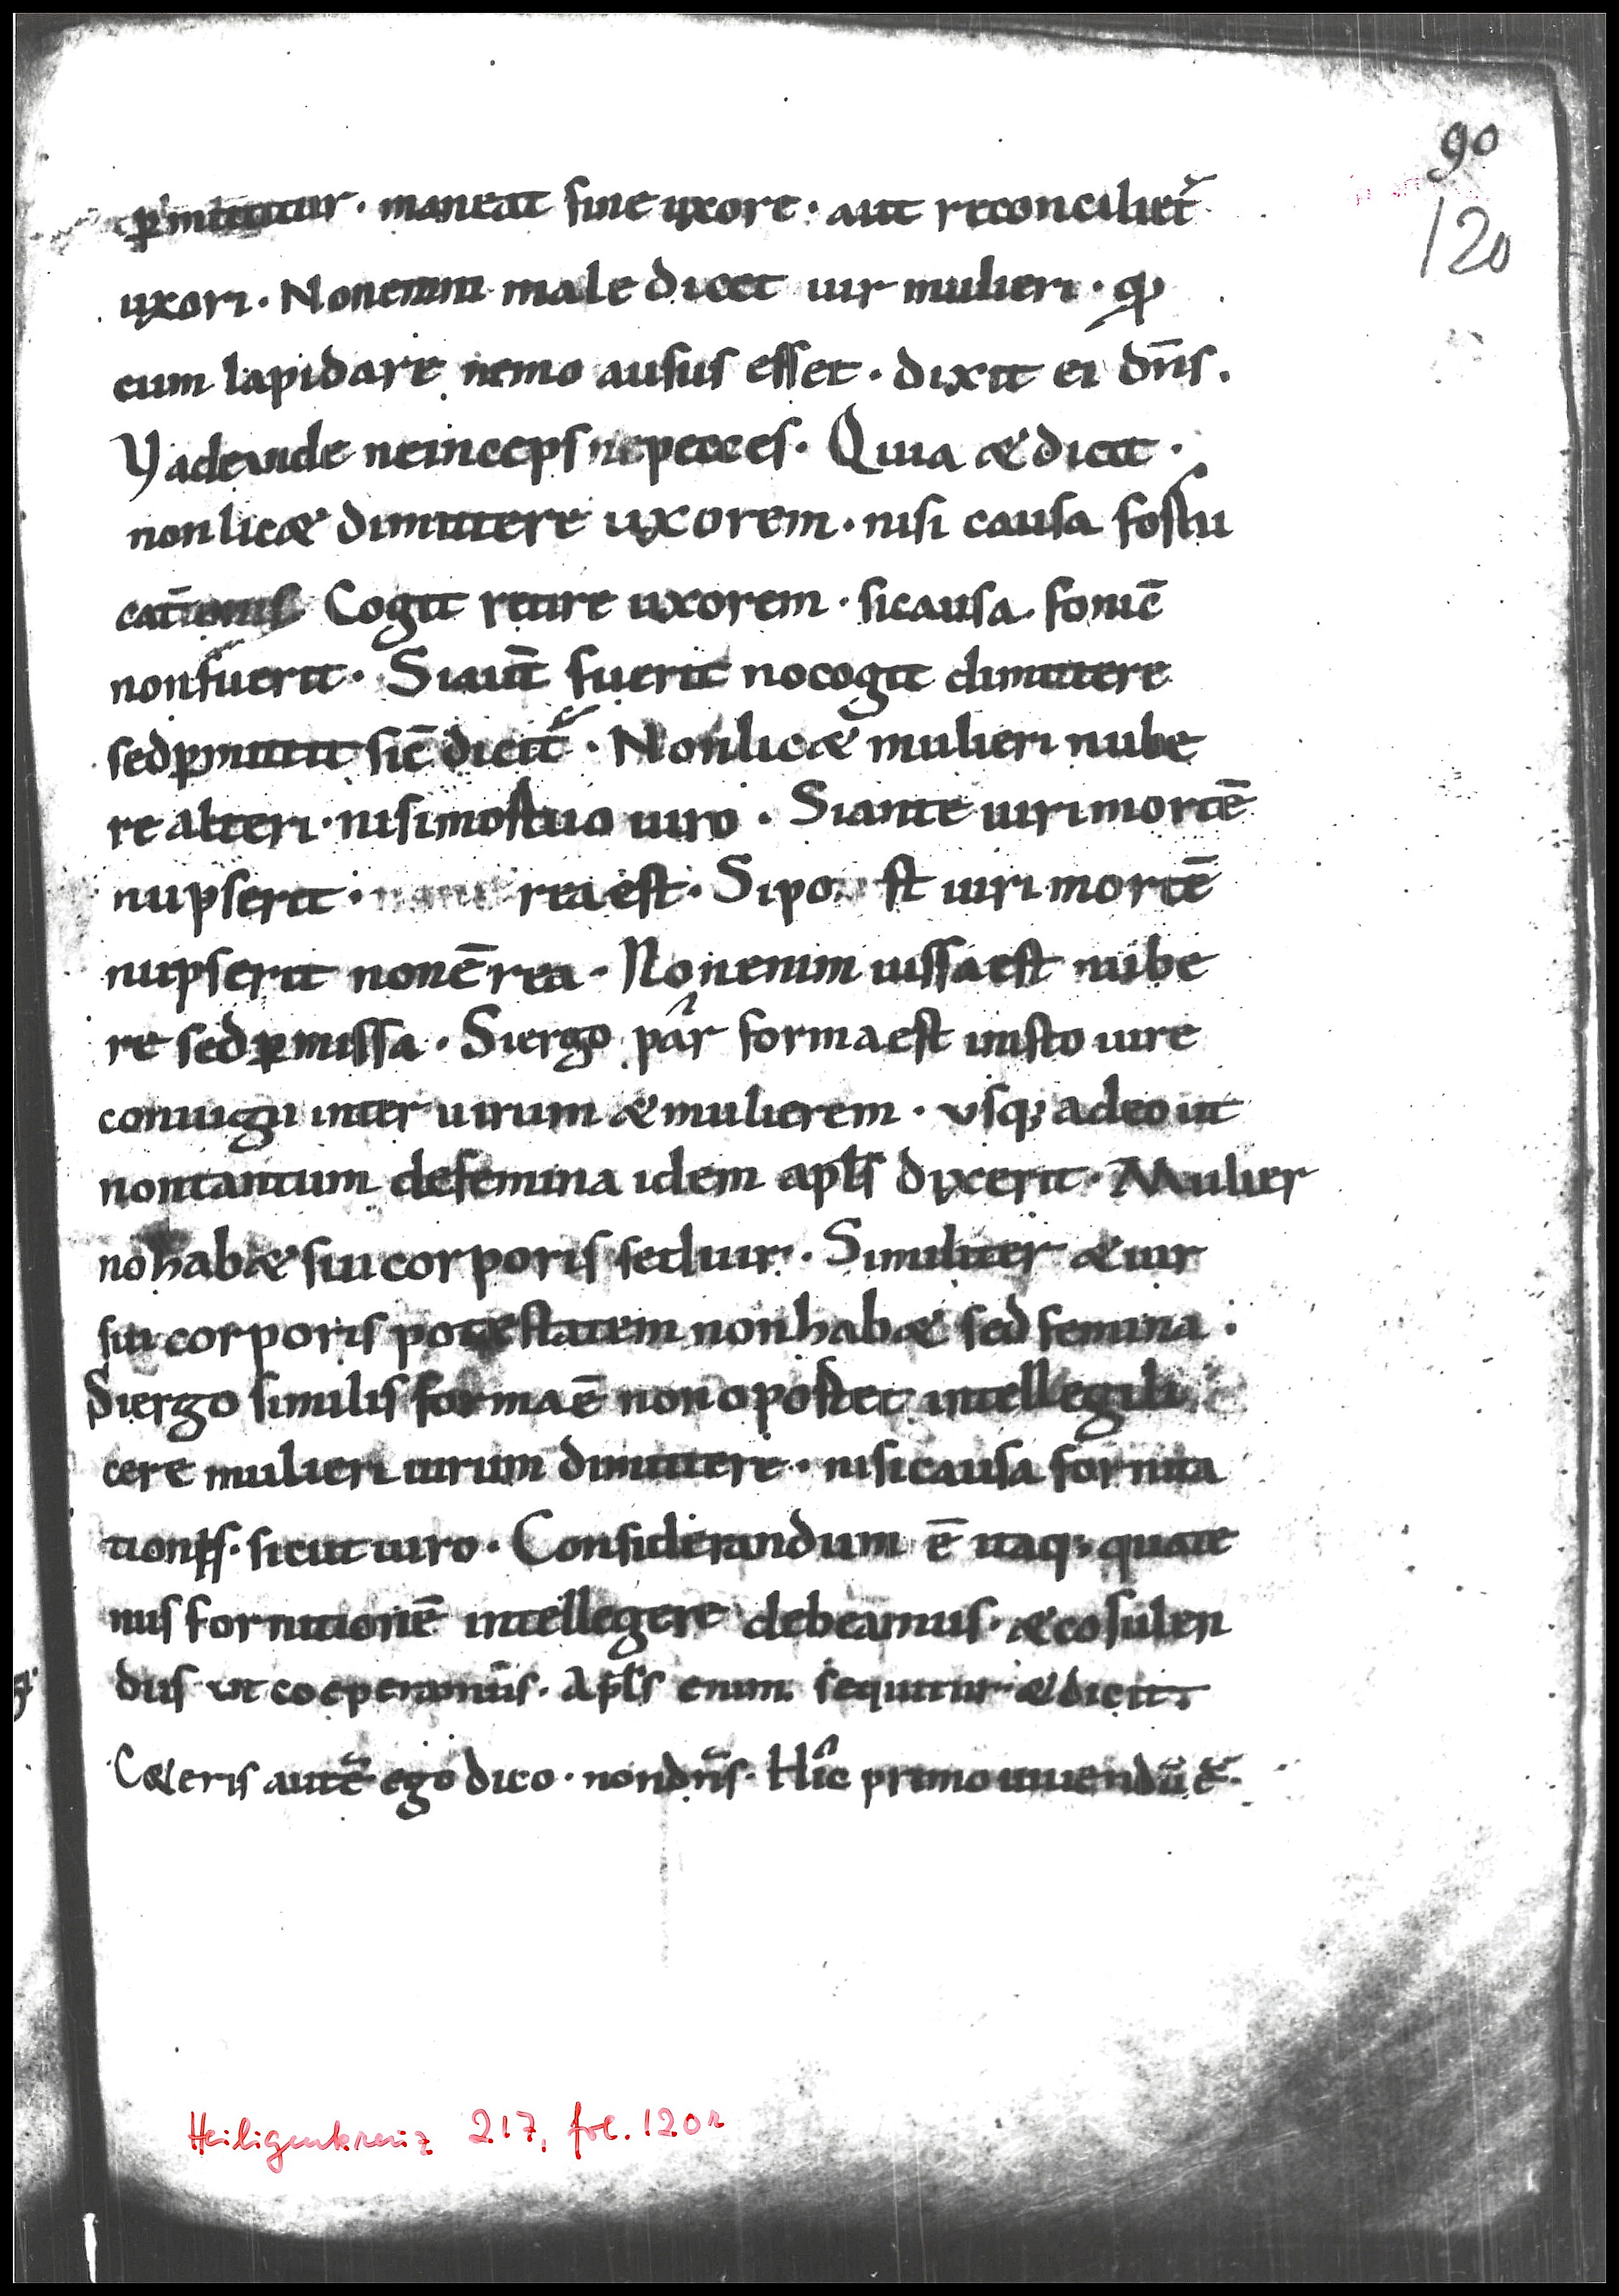 90
120
p̄mittitur · maneat sine uxore · aut reconciliet̄
uxori · Non enim male dicet uir mulieri · qđ
cum lapidare nemo ausus esset · dixit ei dn̄s .
Vade uide neinceps ne pecces · Quia & dicit ·
non lic& dimittere uxorem · nisi causa forni
cat̄ionis Cogit retire uxorem · si causa fornic̄
non fuerit · Si aut̄ fuerit no cogit dimittere
sed p̄mittit sic̄ dicit̄ · Non lic& mulieri nube
re alteri · nisi mortuo uiro · Si ante uiri mortē
nupserit · rea est · Si po st uiri mortē
nupserit non ē rea · Non enim iussa est nube
re sed p̄missa · Si ergo par forma est in isto iure
coniugii inter uirum & mulierem · usq; adeo ut
non tantum de femina idem apl̄s dixerit · Mulier
no hab& sui corporis sed uir · Similiter & uir
sui corporis potestatem non hab& sed femina :
Si ergo similis forma ē non oportet intellegi li
cere mulieri uirum dimittere · nisi causa fornica
tionis · sicut uiro · Considerandum ē itaq; quate
nus fornitionē intellegere debeamus · & cosulen
dus ut coeperamus · Apl̄s enim sequitur & dicit .
C&eris autē ego dico · non dn̄s · Hic primo uiuendū ē ·
Heiligenkreuz 217, fol. 120r